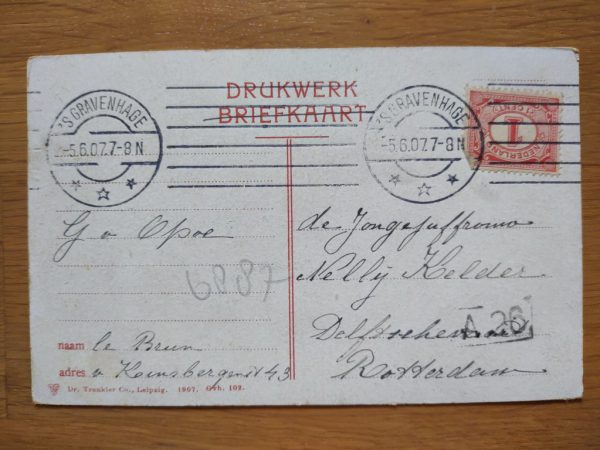 DRUKWERK
BRIEFKAART
'S GRAVENHAGE
-5.6.07.7-8N
'S GRAVENHAGE
-5.6.07.7-8N
1 CENT
1
NEDERLAND
G v Opoe
6887
de Jongejuffrouw
Nelly Kelder
Rotterdam
A 26
naam le Brun
adres v 43
Dr. Trenkler Co., Leipzig. 1907. Gvh. 102.